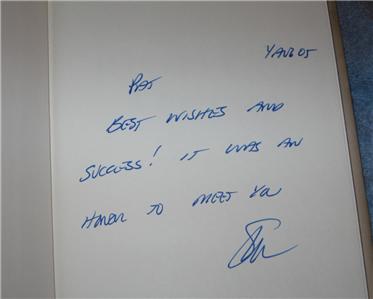 Pat
Best wishes and
success! it was an
honor to meet you